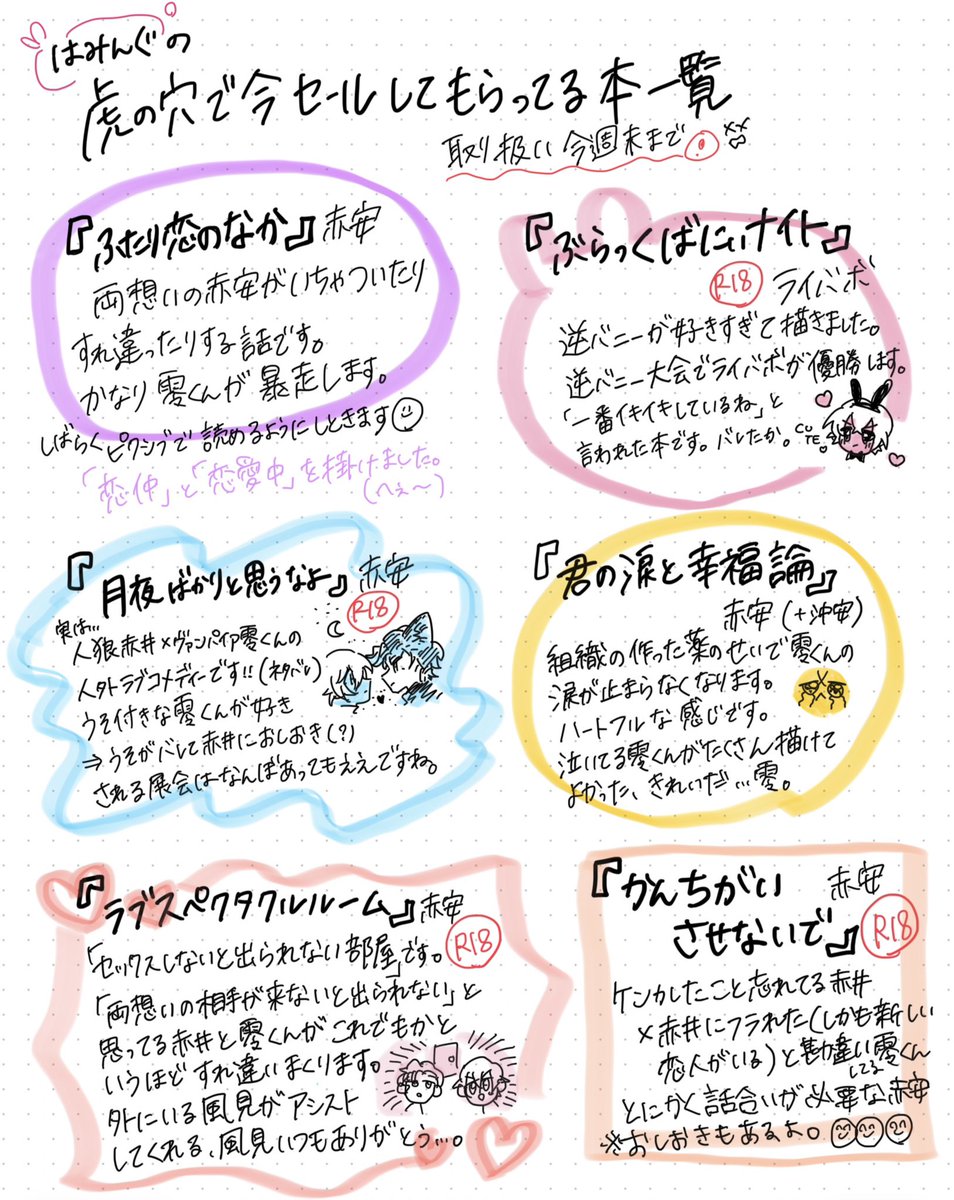 はみんぐの
虎の穴で今セールしてもらってる本一覧
取り扱い今週末まで!
『ふたり恋のなか』赤安
両想いの赤安がいちゃついたり
すれ違ったりする話です。
かなり零くんが暴走します。
しばらくピクシブで読めるようにしときます
「恋仲」と「恋愛中」を掛けました。
(へぇ〜)
『ぶらっくばにぃナイト』
R18 ライバボ
逆バニーが好きすぎて描きました。
逆バニー大会でライバボが優勝します。
「一番イキイキしているね」と
言われた本です。バレたか。
CUTE
『月夜ばかりと思うなよ』赤安
R18
実は…
人狼赤井×ヴァンパイア零くんの
人外ラブコメディーです!!(ネタバレ)
うそ付きな零くんが好き
⇒うそがバレて赤井におしおき(?)
される展会はなんぼあってもええですね。
『君の涙と幸福論』
赤安(+沖安)
組織の作った薬のせいで零くんの
涙が止まらなくなります。
ハートフルな感じです。
泣いてる零くんがたくさん描けて
よかった、きれいだ…零。
『ラブスペクタクルルーム』赤安
R18
「セックスしないと出られない部屋」です。
「両想いの相手が来ないと出られない」と
思ってる赤井と零くんがこれでもかと
いうほどすれ違いまくります。
外にいる風見がアシスト
してくれる、風見いつもありがとう…。
『かんちがい
させないで』
赤安
R18
ケンカしたこと忘れてる赤井
×赤井にフラれた(しかも新しい
恋人がいる)と勘違い零くん
してる
とにかく話合いが必要な赤安
※おしおきもあるよ。